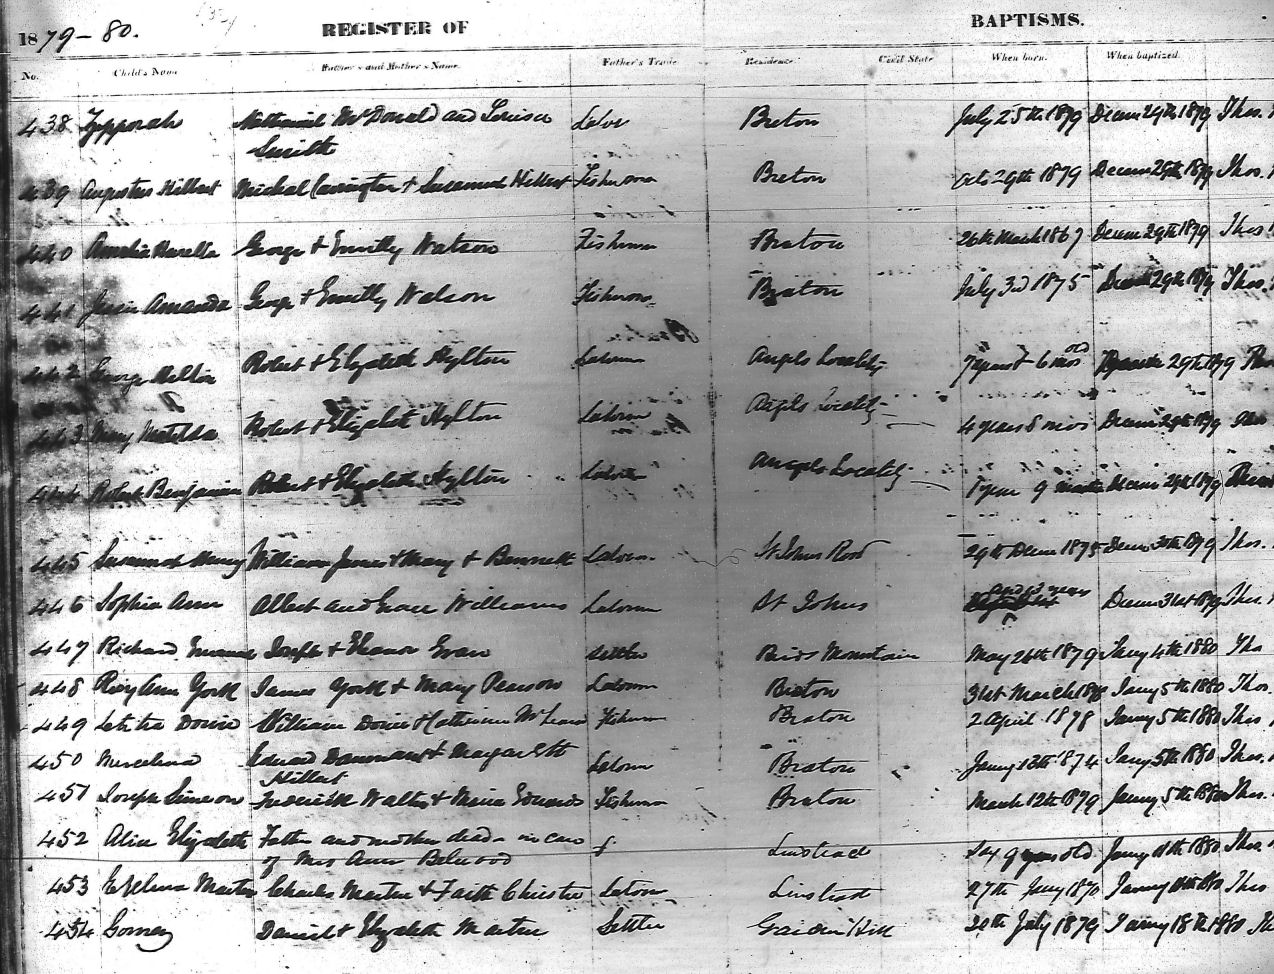 1879-80. REGISTER OF BAPTISMS.
No. Child's Name Father's and Mother's Name Father's Trade Residence Civil State When born. When baptized.
438 Zipporah Nathaniel McDonald and Louisa Labor Breton July 25th 1879 Decem 29th 1879 Thos.
Smith
439 Augustus Hibbert Michal Carrington & Susannah Hibbert Fisherman Breton Octo 29th 1879 Decem 29th 1879 Thos.
440 Amelia George & Emilly Watson Fisherman Braton 26th March 1867 Decem 29th 1879 Thos
441 Amanda George & Emilly Watson Fisherman Braton July 3rd 1875 29th 1879 Thos.
442 George Robert & Elizabeth Hylton Laborer Angels Locality 7 years & 6 mos old 29th 1879
443 Mary Matilda Robert & Elizabeth Hylton Laborer Angels Locality 4 years 8 mos Decem 29th 1879
444 Robert Benjamin Robert & Elizabeth Hylton Laborer Angels Locality 1 year 9 months Decem 29th 1879
445 Susannah Mary William James & Mary Bennett Laborer St Johns Road 29th Decem 1875 Decem 30th 1879 Thos.
446 Sophia Ann Albert and Grace Williams Laborer St Johns aged years Decem 31st 1879 Thos
447 Richard Joseph & Eleanor Evan Settler Mountain May 26th 1879 Jany 4th 1880 Tho
448 Rosy Ann York James York & Mary Pearson Laborer Braton 31st March Jany 5th 1880 Thos.
449 Letitia William & Catherine McLean Fisherman Braton 2 April 1878 Jany 5th 1880 Thos
450 Edward & Margareth Laborer Braton Jany 1874 Jany 5th 1880 Thos.
Hibbert
451 Joseph Simeon Frederick Walter & Maria Edwards Fisherman Braton March 12th 1879 Jany 5th 1880 Thos.
452 Alice Elizabeth Father and mother dead - in care Linstead 9 years old Jany 11th 1880 Thos
of Mrs Ann
453 Martin Charles Martin & Faith Christie Laborer Linstead 27th Jany 1870 Jany 11th 1880 Thos
454 Daniel & Elizabeth Martin Settler Garden Hill 20th July 1879 Jany 18th 1880